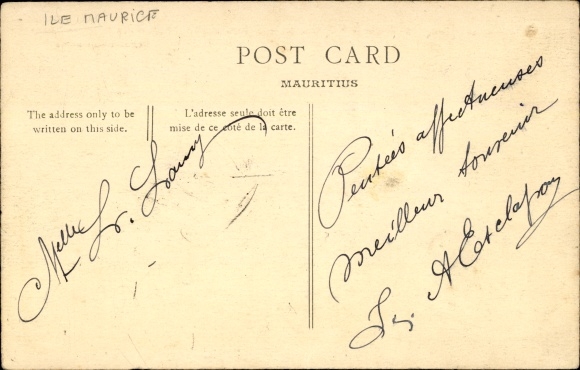 ILE MAURICE
POST CARD
MAURITIUS
The address only to be
written on this side.
L'adresse seule doit être
mise de ce côté de la carte.
Melle L.
Pensées affectueuses
meilleur souvenir